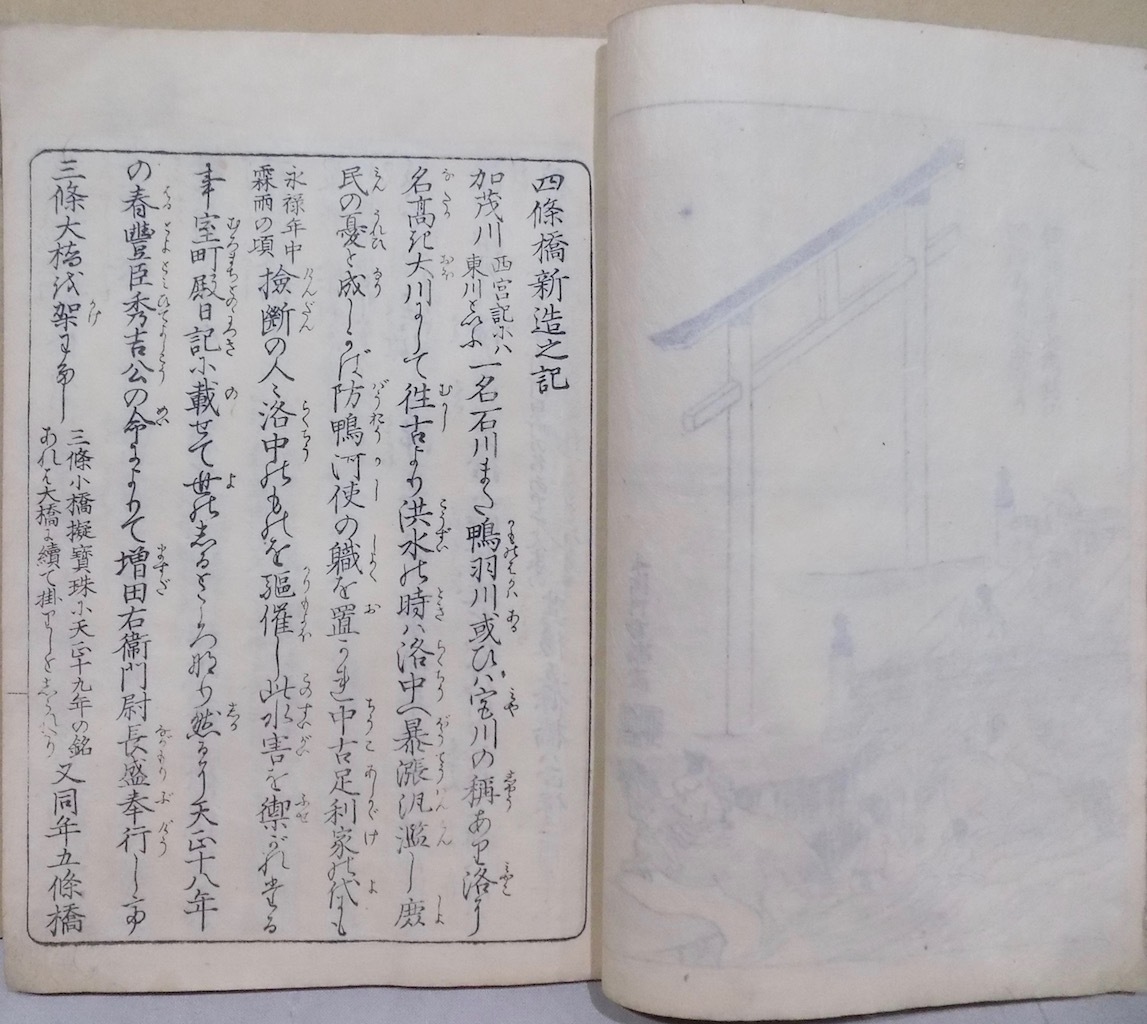 四條橋新造之記
加茂川西宮記にハ東川と云ふ一名石川また鴨羽川或ひハ宮川の称あり洛に
名高き大川にして徃古より洪水の時ハ洛中へ暴漲汎濫し庶
民の憂と成しかば防鴨河使の職を置かれ中古足利家の代にも
永禄年中霖雨の頃撿斷の人々洛中のものを驅催し此水害を禦がれたる
事室町殿日記に載せて世のしるところなり然るに天正十八年
の春豐臣秀吉公の命によりて増田右衞門尉長盛奉行して
三條大橋を架わたし三條小橋擬寶珠に天正十九年の銘あれは大橋に續て掛わたしゝとしられたり又同年五條橋